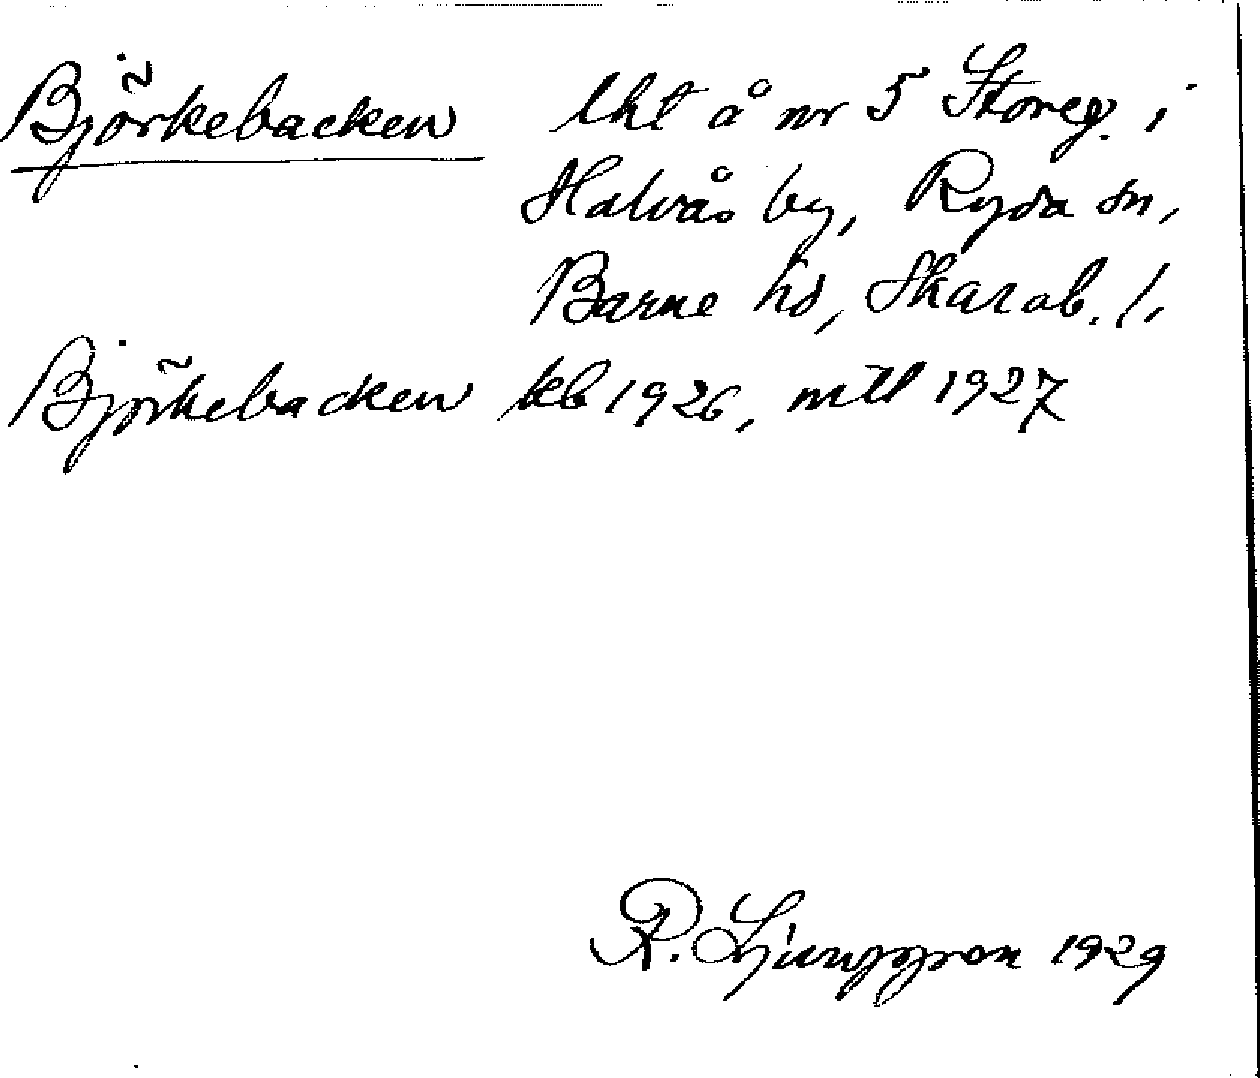 Björkebacken lht å nr 5 Storeg. i
Halvås by, Ryda sn,
Barne hd, Skarab. l.
Björkebacken kb 1926, mtl 1927
R. Ljunggren 1929